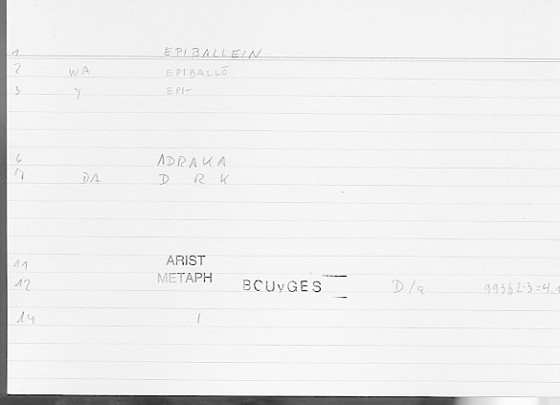 1 EPIBALLEIN
2 WA EPIBALLŌ
3 y EPI-
6 ADRAKA
7 DA D R K
11 ARIST
METAPH
12 BOUyGES D/a
14 1